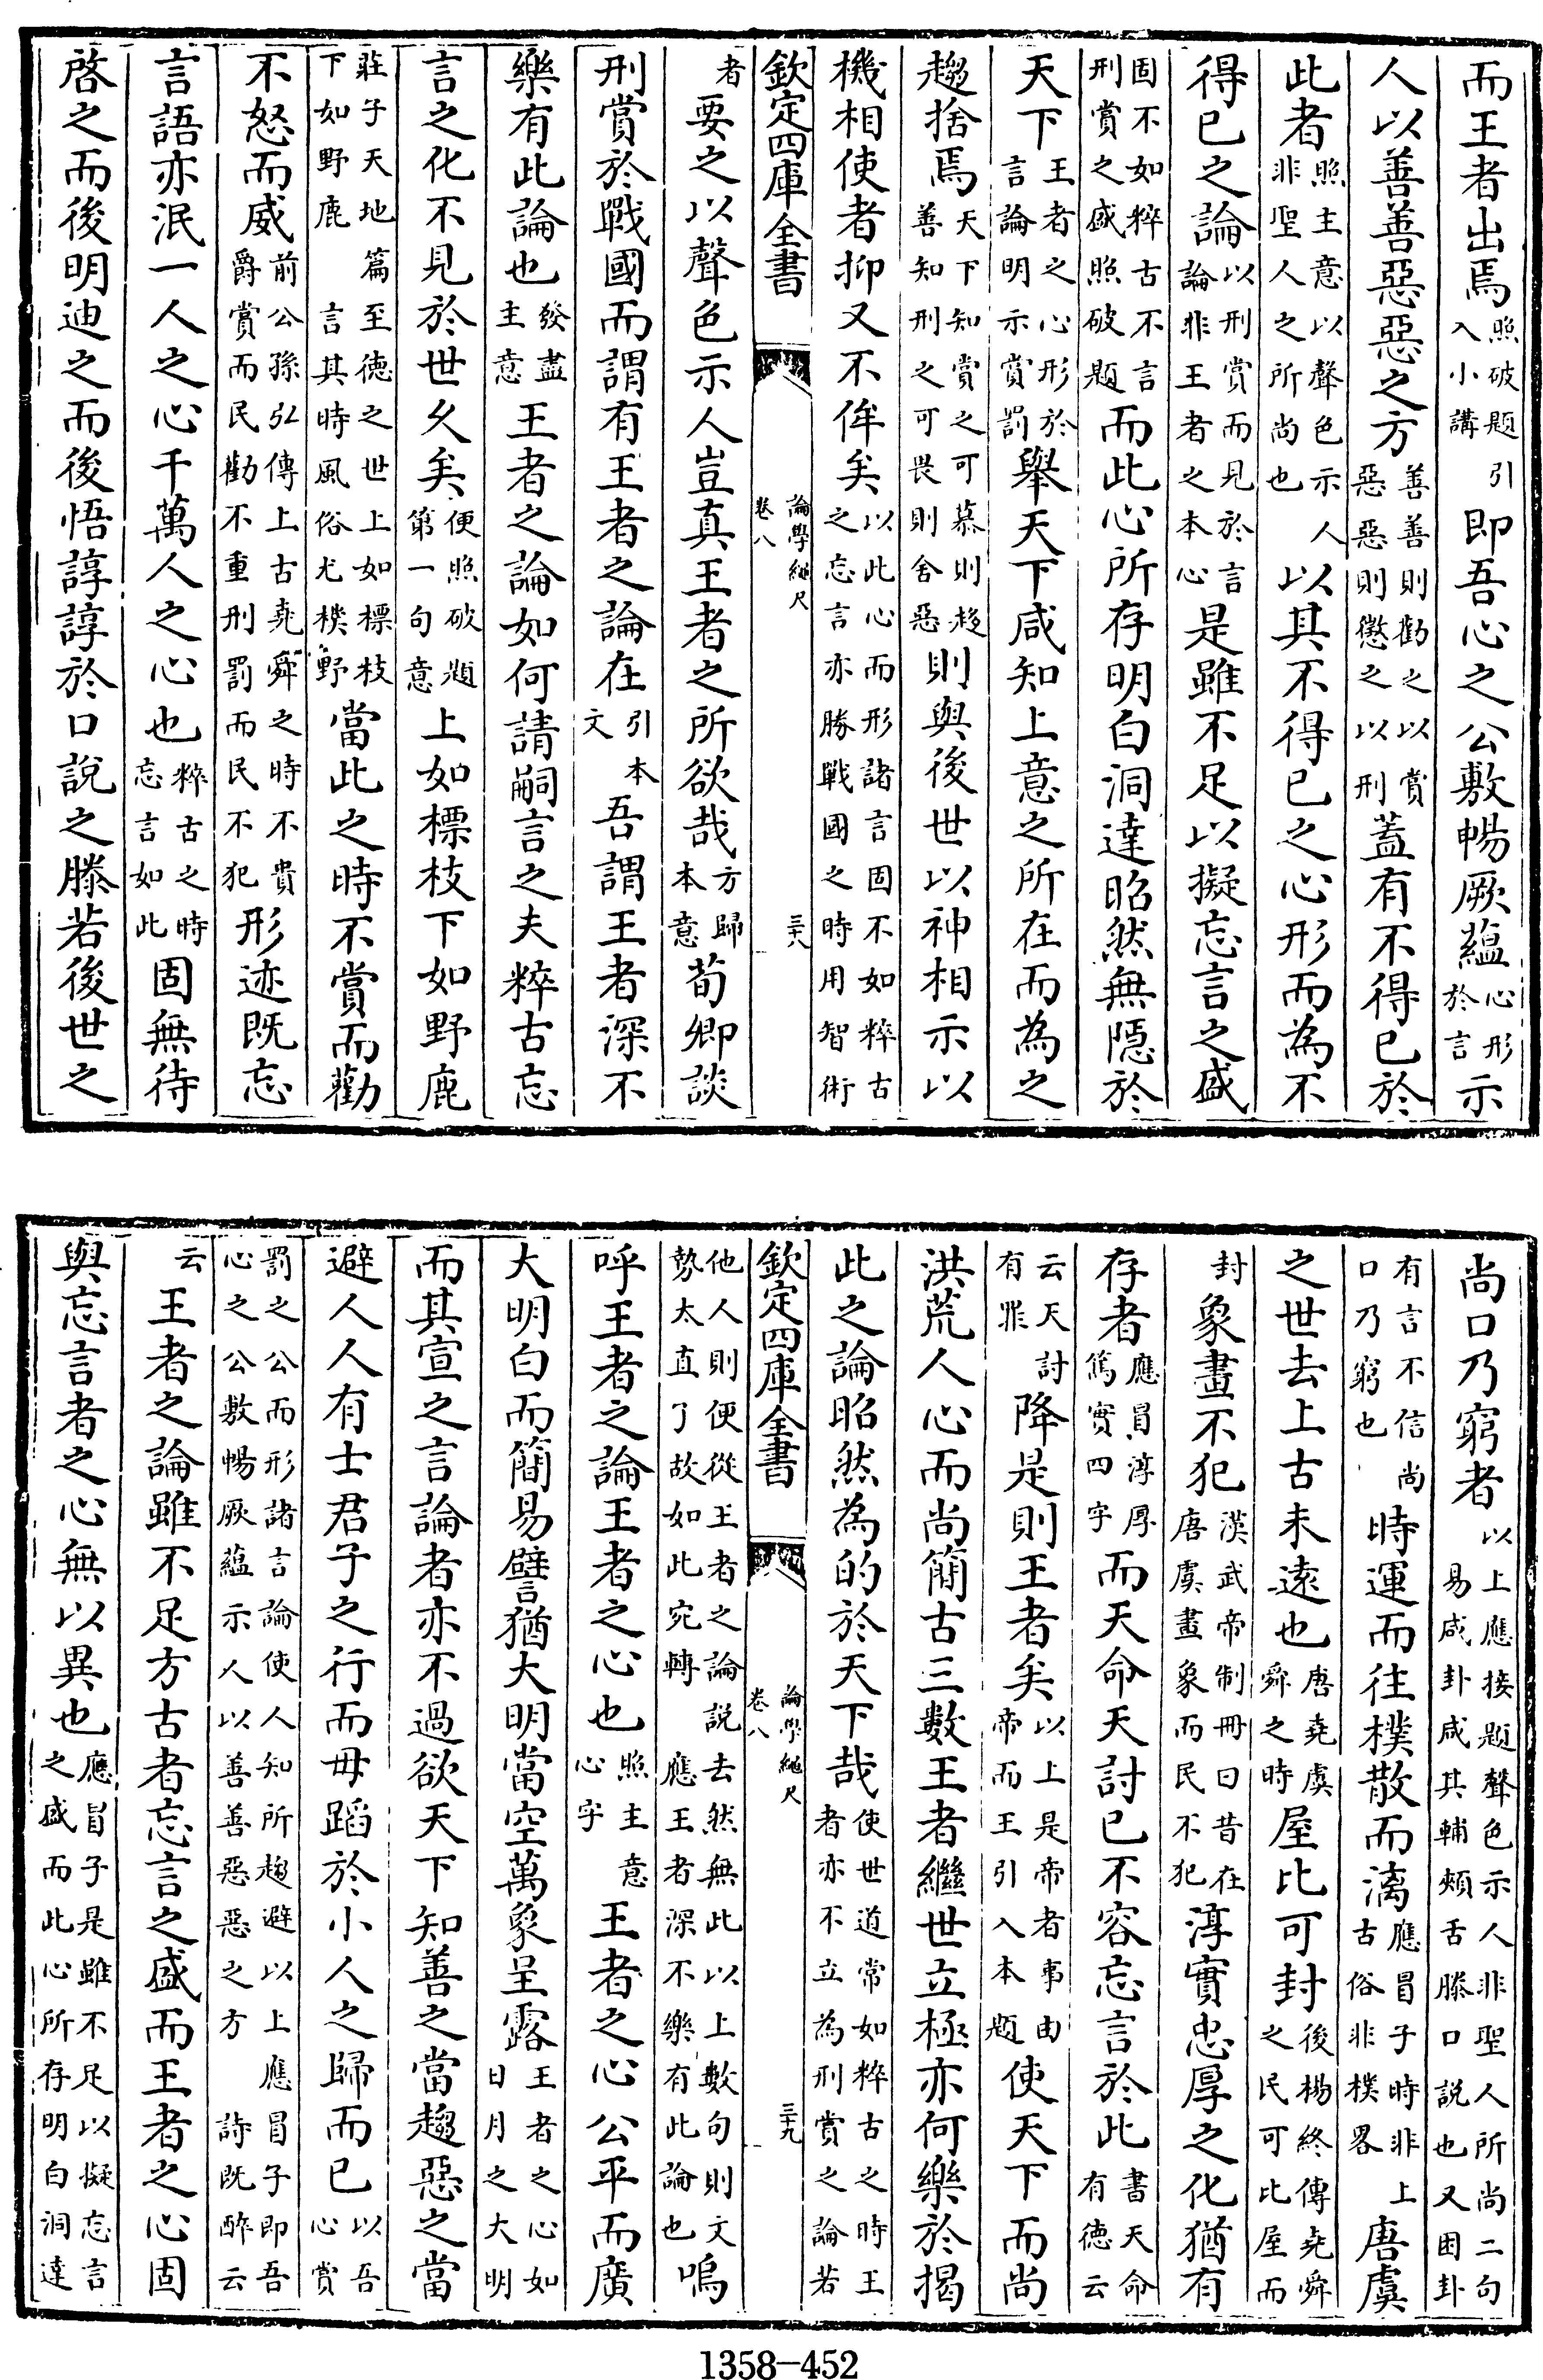 而王者出焉照破題引入小講即吾心之公敷暢厥蘊心形於言示
人以善善惡惡之方善善則勸之以賞惡惡則懲之以刑蓋有不得已於
此者照主意以聲色示人非聖人之所尚也以其不得已之心形而為不
得已之論以刑賞而見於言論非王者之本心是雖不足以擬忘言之盛
固不如粹古不言刑賞之盛照破題而此心所存明白洞達昭然無隱於
天下王者之心形於言論明示賞罰舉天下咸知上意之所在而為之
趨捨焉天下知賞之可慕則趍善知刑之可畏則舍惡則與後世以神相示以
機相使者抑又不侔矣以此心而形諸言固不如粹古之忘言亦勝戰國之時用智術
欽定四庫全書 論學繩尺卷八 三十八
者要之以聲色示人豈真王者之所欲哉方歸本意荀卿談
刑賞於戰國而謂有王者之論在引本文吾謂王者深不
樂有此論也發盡主意王者之論如何請嗣言之夫粹古忘
言之化不見於世久矣便照破題第一句意上如標枝下如野鹿
莊子天地篇至德之世上如標枝下如野鹿言其時風俗尤樸野當此之時不賞而勸
不怒而威前公孫弘傳上古堯舜之時不貴爵賞而民勸不重刑罰而民不犯形迹既忘
言語亦泯一人之心千萬人之心也粹古之時忘言如此固無待
啓之而後明迪之而後悟諄諄於口說之滕若後世之
尚口乃窮者以上應接題聲色示人非聖人所尚二句易咸卦咸其輔頰舌滕口説也又困卦
有言不信尚口乃窮也時運而往樸散而漓應冒子時非上古俗非樸畧唐虞
之世去上古未遠也唐堯虞舜之時屋比可封後楊終傳堯舜之民可比屋而
封象畫不犯漢武帝制冊曰昔在唐虞畫象而民不犯淳實忠厚之化猶有
存者應冒淳厚篤實四字而天命天討已不容忘言於此書天命有德云
云天討有罪降是則王者矣以上是帝者事由帝而王引入本題使天下而尚
洪荒人心而尚簡古三數王者繼世立極亦何樂於揭
此之論昭然為的於天下哉使世道常如粹古之時王者亦不立為刑賞之論若
欽定四庫全書 論學繩尺卷八 三十九
他人則便從王者之論説去然無此以上數句則文勢太直了故如此宛轉應王者深不樂有此論也嗚
呼王者之論王者之心也照主意心字王者之心公平而廣
大明白而簡易譬猶大明當空萬象呈露王者之心如日月之大明
而其宣之言論者亦不過欲天下知善之當趨惡之當
避人人有士君子之行而毋蹈於小人之歸而已以吾心賞
罰之公而形諸言論使人知所趨避以上應冒子即吾心之公敷暢厥蘊示人以善善惡惡之方詩既醉云
云王者之論雖不足方古者忘言之盛而王者之心固
與忘言者之心無以異也應冒子是雖不足以擬忘言之盛而此心所存明白洞達
1358-452